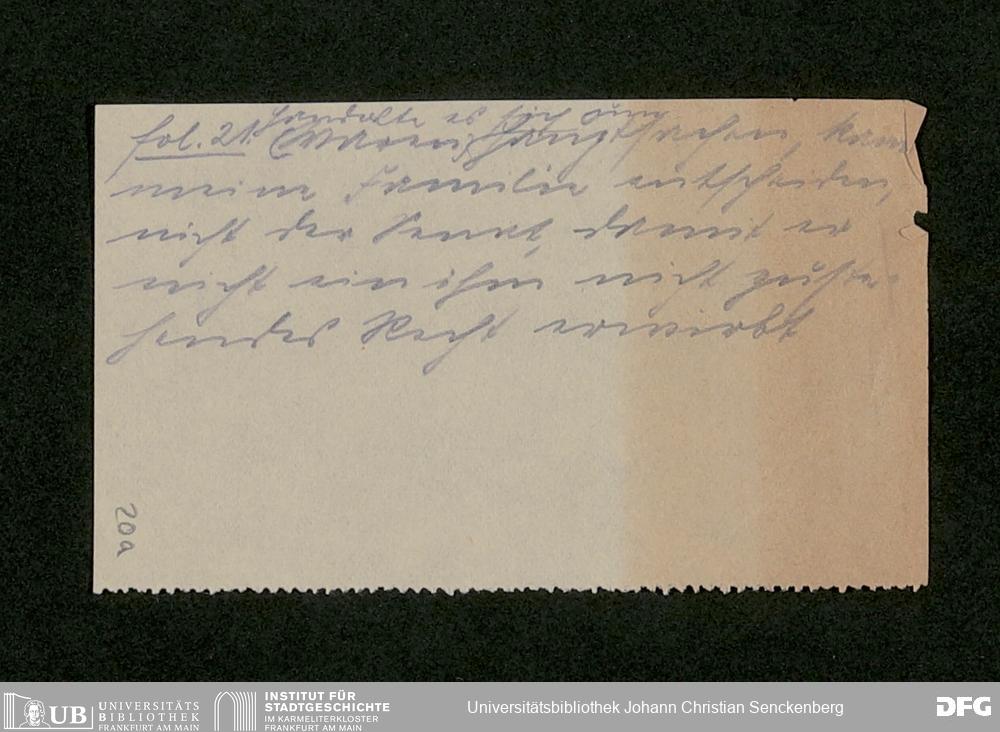 handelte es sich um
fol. 21. (Waren) Hauptsachen, kann
meine Familie entscheiden,
nicht der Senat, damit er
nicht ein ihm nicht zuste-
hendes Recht erwirbt
20a
UB UNIVERSITÄTS
BIBLIOTHEK
FRANKFURT AM MAIN
INSTITUT FÜR
STADTGESCHICHTE
IM KARMELITERKLOSTER
FRANKFURT AM MAIN
Universitätsbibliothek Johann Christian Senckenberg
DFG